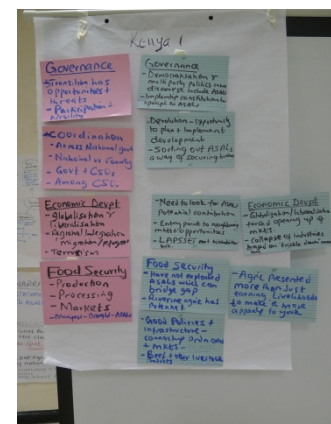 Kenya 1
Governance
- Transition has
opportunities +
threats
- Participation &
Coordination
- Across National govt
- National vs County
- Govt + CSOs
- Among CSOs
Economic Devpt
- globalisation &
liberalisation
- Regional Integration
- migration/refugees
- Terrorism
Food Security
- Production
- Processing
- Markets
Governance
- Democratisation &
multi party politics
discourse include ASALs
- Implement constitution to
ASALs
- Devolution - opportunity
to plan + implement
development
- Sorting out ASALs
a way of securing
- Need to look for ASALs
Potential contribution
- Entry point to neighbouring
mkts/opportunities
- LAPSSET
Food Security
- Have not exploited
ASALs which can
bridge gap
- Riverine agric has
Potential
- Good Policies +
infrastructure -
+ mkts -
- Beef + other livestock
Economic Devpt
- Globalization/liberalization
opening up of
mkts
- collapse of industries
- Agric Presented
more than just
earning Livelihoods
to make it more
appealing to youth